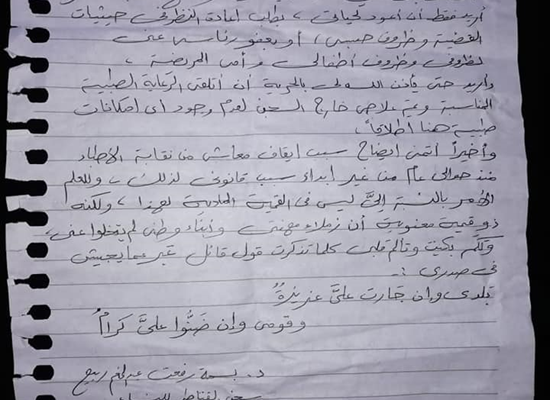 أريد فقط أن أعود لحياتي ، بطلب إعادة النظر في حيثيات
القضية وظروف حبسي ، أو بعفو رئاسي عني
لظروفي وظروف أطفالي وأمي المريضة .
وأريد حتى يأذن الله لي بالحرية أن أتلقى الرعاية الطبية
المناسبة وعلاجي خارج السجن لعدم وجود أي إمكانات
طبية هنا إطلاقاً .
وأخيراً أتمنى إيضاح سبب إيقاف معاشي من نقابة الأطباء
منذ حوالي عام من غير إبداء سبب قانوني لذلك ، وللعلم
الأمر بالنسبة إليَّ ليس في القيمة المادية لهذا ، ولكنه
ذو قيمة معنوية أن زملاء مهنتي وأبناء وطني لم يتخلوا عني ،
ولكم بكيت وتألم قلبي كلما تذكرت قول قائل عبر عما يجيش
في صدري :-
بلادي وإن جارت عليَّ عزيزةٌ
وقومي وإن ضنُّوا عليَّ كرامُ
د. بسمة رفعت عبد المنعم ربيع
سجن القناطر للنساء